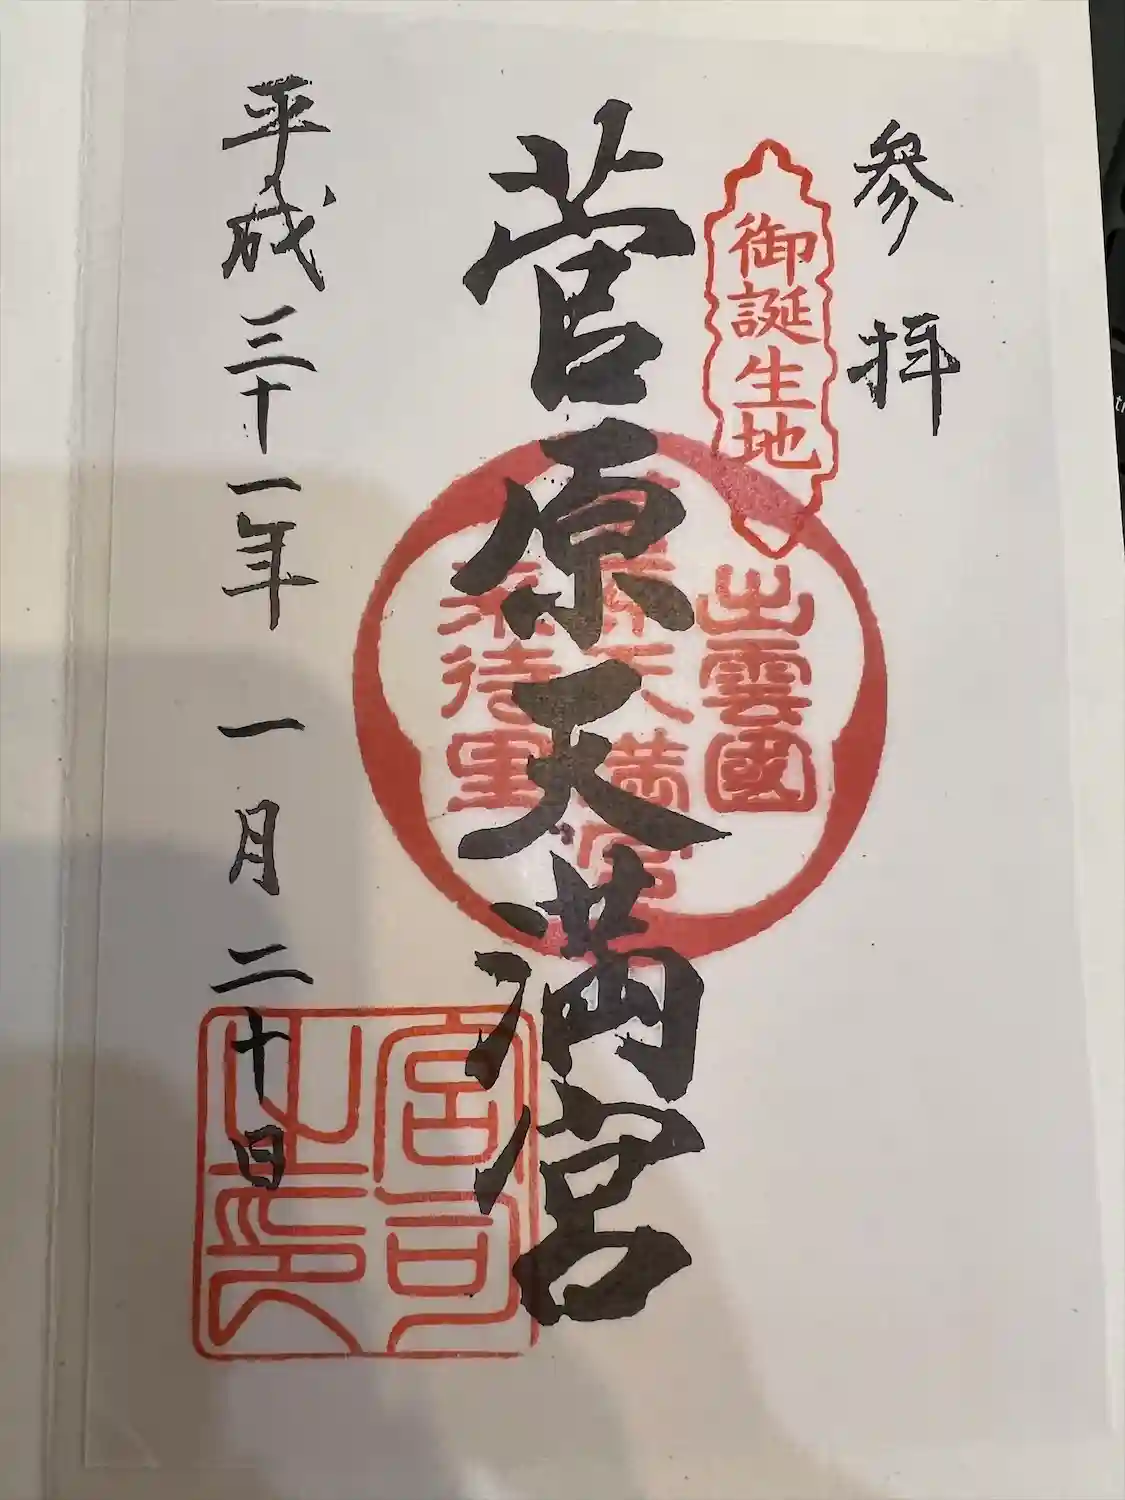 参拝
御誕生地
出雲國
菅原天満宮
来待里
菅原天満宮
宮司
之印
平成三十一年 一月二十日